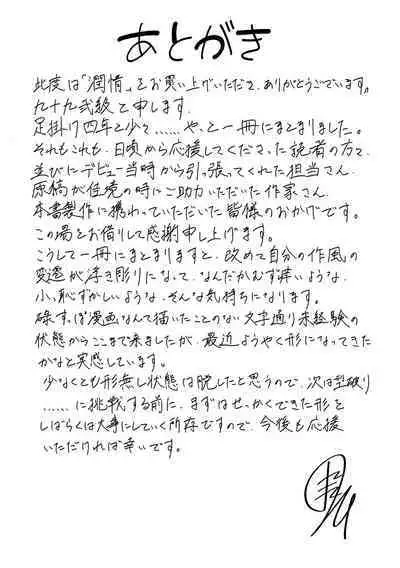 あとがき
此度は「潤情」をお買い上げいただき、ありがとうございます。
九十九弐級と申します。
足掛け四年と少々……やっと一冊にまとまりました。
それもこれも、日頃から応援してくださった読者の方々、
並びにデビュー当時から引っ張ってくれた担当さん、
原稿が佳境の時にご助力いただいた作家さん、
本書製作に携わっていただいた皆様のおかげです。
この場をお借りして感謝申し上げます。
こうして一冊にまとまりますと、改めて自分の作風の
変遷が浮き彫りになって、なんだかむず痒いような、
小っ恥ずかしいような、そんな気持ちになります。
碌すっぽ漫画なんて描いたことのない文字通り未経験の
状態からここまで来ましたが、最近ようやく形になってきた
かなと実感しています。
少なくとも形無し状態は脱したと思うので、次は型破り
……に挑戦する前に、まずはせっかくできた形を
しばらくは大事にしていく所存ですので、今後も応援
いただければ幸いです。